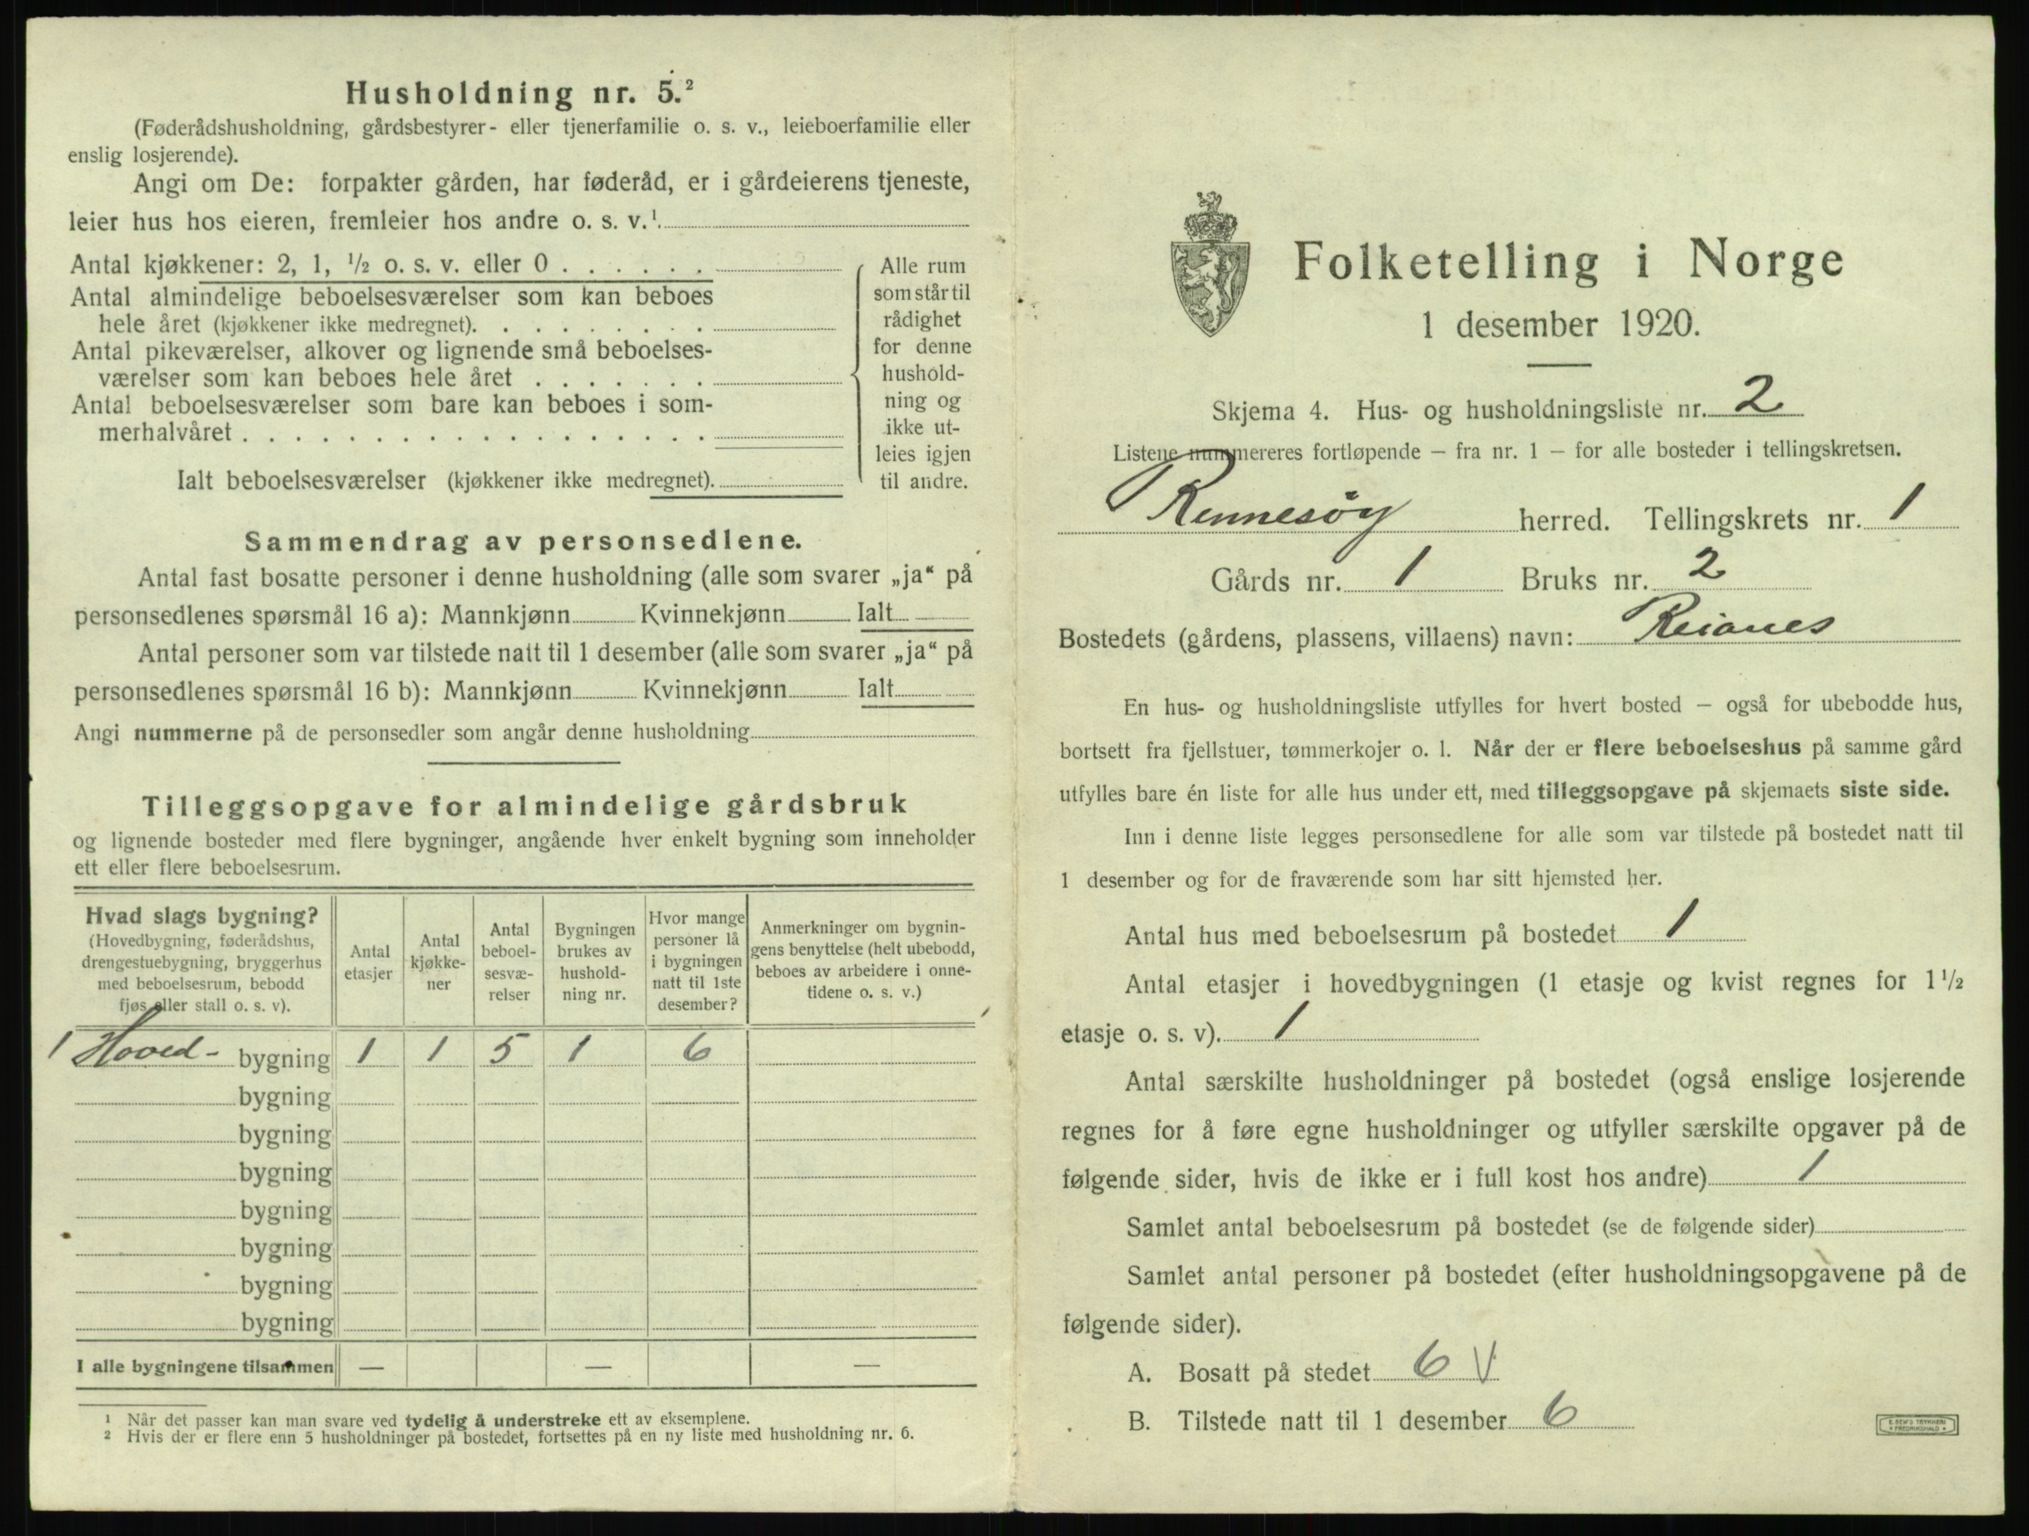 Husholdning nr. 5.²
(Føderådshusholdning, gårdsbestyrer- eller tjenerfamilie o. s. v., leieboerfamilie eller
enslig losjerende).
Angi om De: forpakter gården, har føderåd, er i gårdeierens tjeneste,
leier hus hos eieren, fremleier hos andre o. s. v.¹
Antal kjøkkener: 2, 1, ½ o. s. v. eller 0 . . . . . .
Antal almindelige beboelsesværelser som kan beboes
hele året (kjøkkener ikke medregnet). . . . . . . . .
Antal pikeværelser, alkover og lignende små beboelses-
værelser som kan beboes hele året . . . . . . .
Antal beboelsesværelser som bare kan beboes i som-
merhalvåret . . . . . . . . . . . . . . . . . .
Ialt beboelsesværelser (kjøkkener ikke medregnet).
Alle rum
som står til
rådighet
for denne
hushold-
ning og
ikke ut-
leies igjen
til andre.
Sammendrag av personsedlene.
Antal fast bosatte personer i denne husholdning (alle som svarer „ja“ på
personsedlenes spørsmål 16 a): Mannkjønn Kvinnekjønn Ialt
Antal personer som var tilstede natt til 1 desember (alle som svarer „ja“ på
personsedlenes spørsmål 16 b): Mannkjønn Kvinnekjønn Ialt
Angi nummerne på de personsedler som angår denne husholdning
Tilleggsopgave for almindelige gårdsbruk
og lignende bosteder med flere bygninger, angående hver enkelt bygning som inneholder
ett eller flere beboelsesrum.
Hvad slags bygning?
(Hovedbygning, føderådshus,
drengestuebygning, bryggerhus
med beboelsesrum, bebodd
fjøs eller stall o. s. v).
Antal
etasjer
Antal
kjøkke-
ner
Antal
beboel-
sesvæ-
relser
Bygningen
brukes av
hushold-
ning nr.
Hvor mange
personer lå
i bygningen
natt til 1ste
desember?
Anmerkninger om bygnin-
gens benyttelse (helt ubebodd,
beboes av arbeidere i onne-
tidene o. s. v.)
1 Hoved- bygning 1 1 5 1 6
bygning
bygning
bygning
bygning
bygning
bygning
bygning
I alle bygningene tilsammen — — —
¹ Når det passer kan man svare ved tydelig å understreke ett av eksemplene.
² Hvis der er flere enn 5 husholdninger på bostedet, fortsettes på en ny liste med husholdning nr. 6.
Folketelling i Norge
1 desember 1920.
Skjema 4. Hus- og husholdningsliste nr. 2
Listene nummereres fortløpende – fra nr. 1 – for alle bosteder i tellingskretsen.
Rennesøy herred. Tellingskrets nr. 1
Gårds nr. 1 Bruks nr. 2
Bostedets (gårdens, plassens, villaens) navn: Reianes
En hus- og husholdningsliste utfylles for hvert bosted – også for ubebodde hus,
bortsett fra fjellstuer, tømmerkojer o. l. Når der er flere beboelseshus på samme gård
utfylles bare én liste for alle hus under ett, med tilleggsopgave på skjemaets siste side.
Inn i denne liste legges personsedlene for alle som var tilstede på bostedet natt til
1 desember og for de fraværende som har sitt hjemsted her.
Antal hus med beboelsesrum på bostedet 1
Antal etasjer i hovedbygningen (1 etasje og kvist regnes for 1½
etasje o. s. v). 1
Antal særskilte husholdninger på bostedet (også enslige losjerende
regnes for å føre egne husholdninger og utfyller særskilte opgaver på de
følgende sider, hvis de ikke er i full kost hos andre) 1
Samlet antal beboelsesrum på bostedet (se de følgende sider)
Samlet antal personer på bostedet (efter husholdningsopgavene på de
følgende sider).
A. Bosatt på stedet 6 V
B. Tilstede natt til 1 desember 6